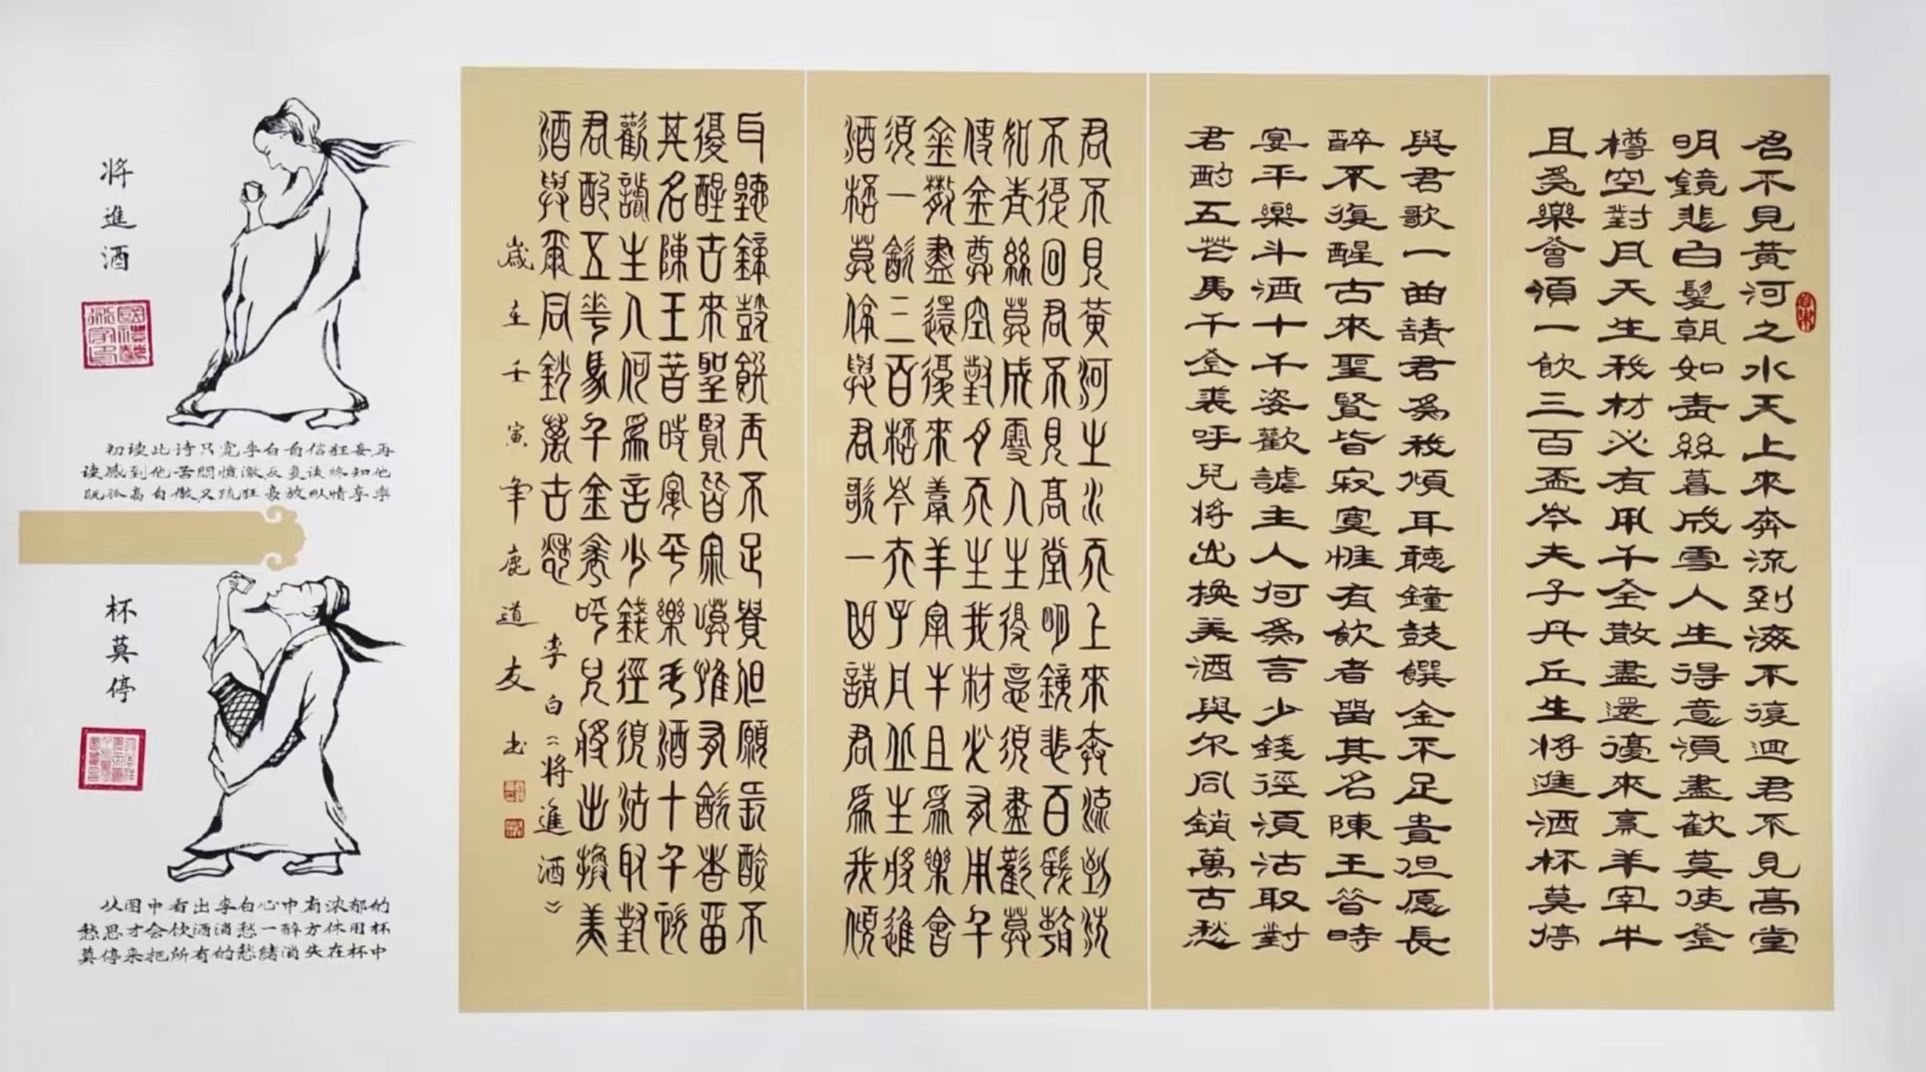 君不見黃河之水天上來奔流到海不復迴君不見高堂
明鏡悲白髮朝如青絲暮成雪人生得意須盡歡莫使金
樽空對月天生我材必有用千金散盡還復來烹羊宰牛
且為樂會須一飲三百盃岑夫子丹丘生將進酒杯莫停
與君歌一曲請君為我傾耳聽鐘鼓饌金不足貴但愿長
醉不復醒古來聖賢皆寂寞惟有飲者留其名陳王昔時
宴平樂斗酒十千恣歡謔主人何為言少錢徑須沽取對
君酌五花馬千金裘呼兒將出換美酒與尔同銷萬古愁
君不見黃河之水天上來奔流到海
不復回君不見高堂明鏡悲白髮朝
如青絲暮成雪人生得意須盡歡莫
使金尊空對月天生我材必有用千
金散盡還復來羊宰牛且為樂會
須一飲三百杯岑夫子丹丘生將進
酒杯莫停與君歌一曲請君為我傾
耳聽鐘鼓饌玉不足貴但願長醉不
復醒古來聖賢皆寂寞惟有飲者留
其名陳王昔時宴平樂斗酒十千恣
歡謔主人何為言少錢徑須沽取對
君酌五花馬千金裘呼兒將出換美
酒與爾同銷萬古愁 李白《将進酒》
歲在壬寅年鹿道友书
将進酒
初读此诗只觉李白自信狂妄再
读感到他苦悶憤激反复读终知他
既孤高自傲又疏狂豪放纵情享乐
杯莫停
从图中看出李白心中有浓郁的
愁思才会饮酒消愁一醉方休用杯
莫停来把所有的愁緒消失在杯中